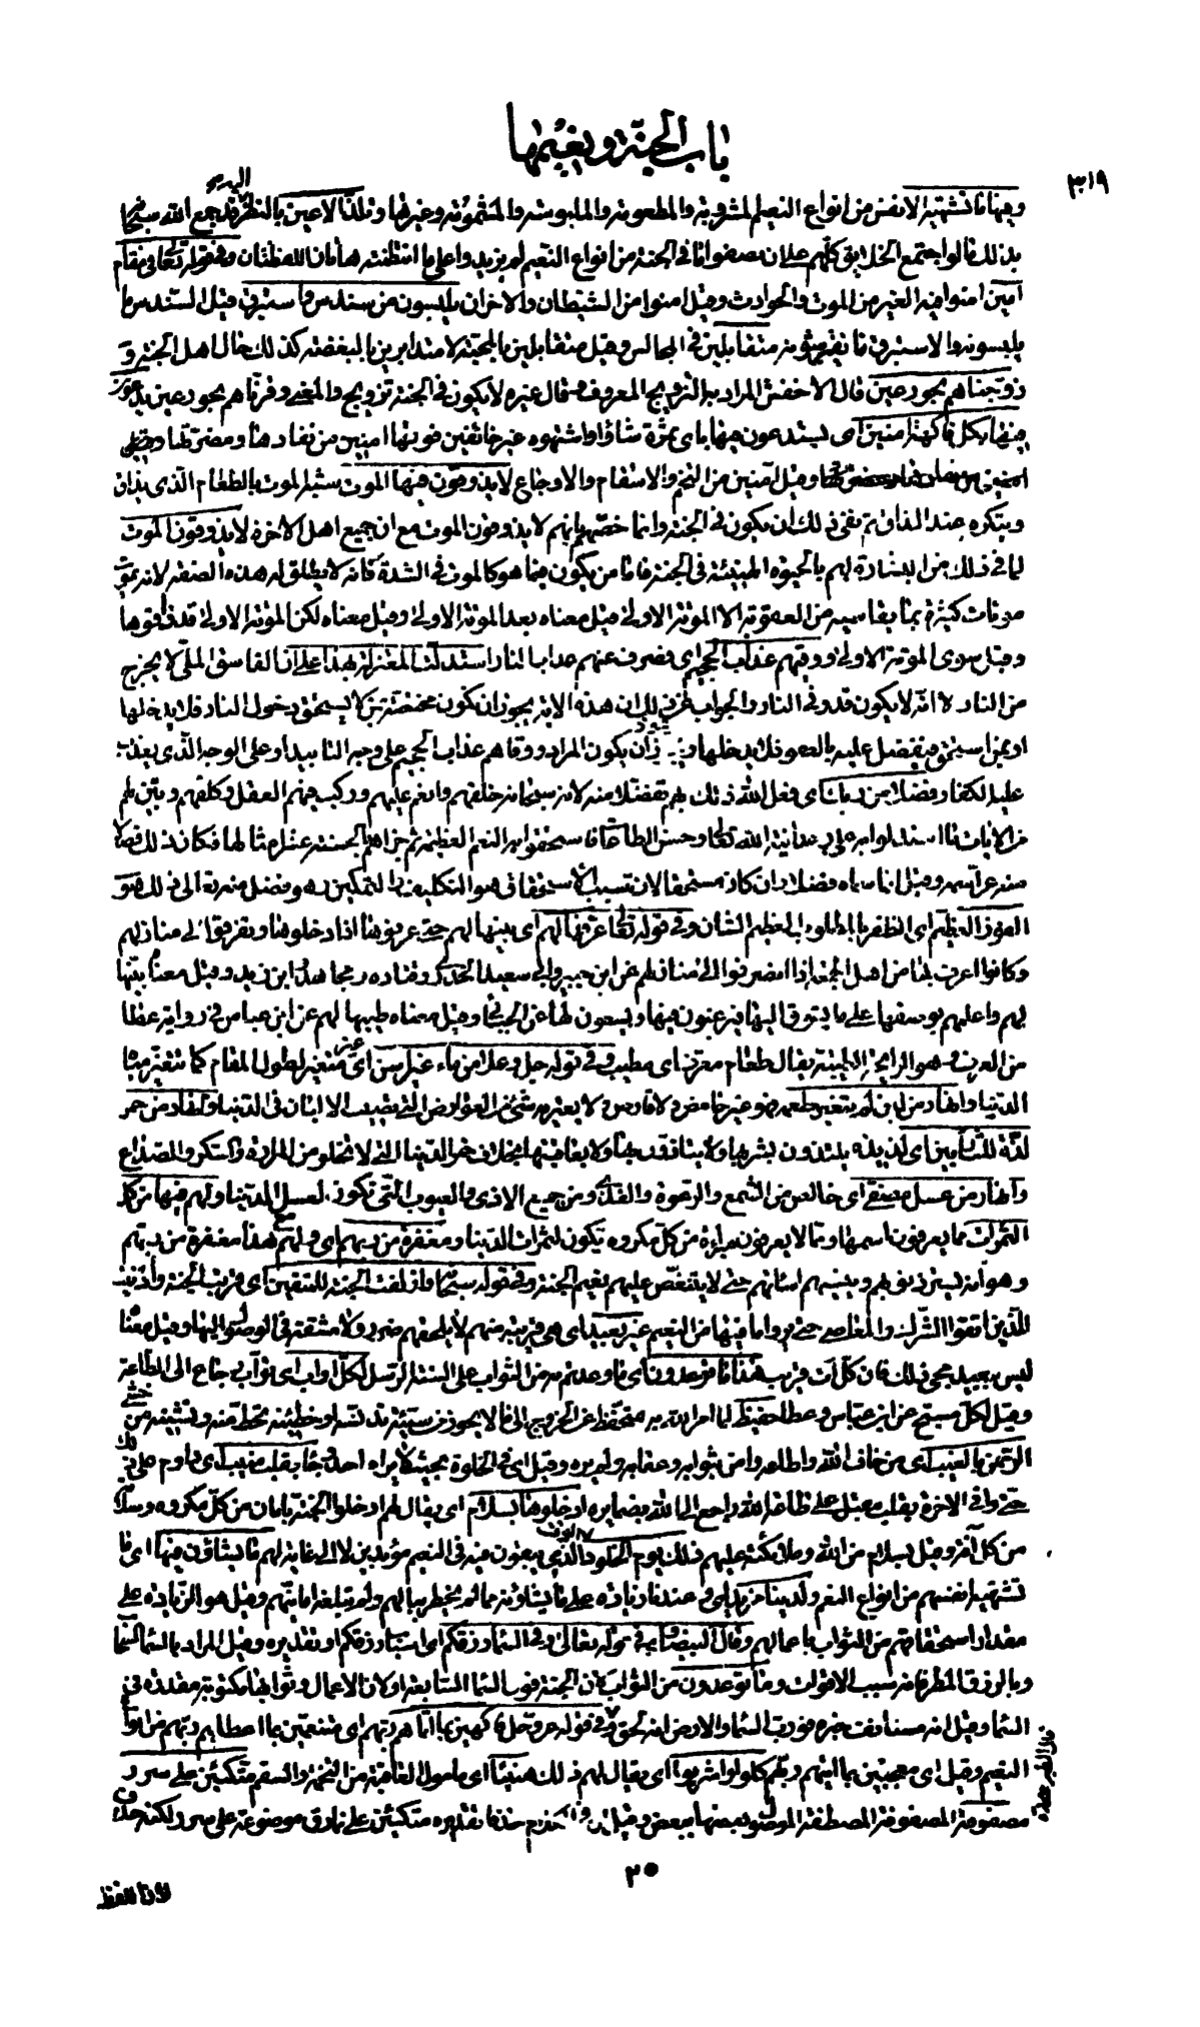 باب الجنة ونعيمها
٣١٩
وفيها ما تشتهيه الانفس من انواع النعيم المشروبة والمطعومة والملبوسة والمشمومة وغيرها وتلذ الاعين بالنظر اليه قد جمع الله سبحانه
بذلك ما لو اجتمع الخلايق كلهم على ان يصفوا ما في الجنة من انواع النعيم لم يزيدوا على ما انتظمته هاتان اللفظتان وفي قوله تعالى في مقام
امين امنوا فيه الغير من الموت والحوادث وقيل امنوا من الشيطان والاحزان يلبسون من سندس واستبرق قيل السندس ما
يلبسونه والاستبرق ما يفترشونه متقابلين في المجالس وقيل متقابلين بالمحبة لا متدابرين بالبغضة كذلك حال اهل الجنة و
زوجناهم بحور عين قال الاخفش المراد به التزويج المعروف وقال غيره لا يكون في الجنة تزويج والمعنى وقرناهم بحور عين يدعون
فيها بكل فاكهة امنين اى يستدعون فيها باى ثمرة شاؤا واشتهوه غير خائفين فوتها امنين من نفادها ومضرتها وقيل
وقيل آمنين من التخم والاسقام والاوجاع لا يذوقون فيها الموت شبه الموت بالطعام الذى يذاق
ويتكره عند المذاق ثم نفى ذلك ان يكون في الجنة وانما خصهم بانهم لا يذوقون الموت مع ان جميع اهل الاخرة لا يذوقون الموت
لما في ذلك من البشارة لهم بالحيوة الهنيئة في الجنة فاما من يكون فيما هو كالموت في الشدة فانه لا يطلق له هذه الصفة لانه يموت
موتات كثيرة بما يقاسيه من العقوبة الا الموتة الاولى قيل معناه بعد الموتة الاولى وقيل معناه لكن الموتة الاولى قد ذاقوها
وقيل سوى الموتة الاولى ووقيهم عذاب الجحيم اى فصرف عنهم عذاب النار استدلت المعتزلة بهذا على ان الفاسق الملى لا يخرج
من النار لانه لا يكون قد وقى النار والجواب عن ذلك ان هذه الاية يجوز ان تكون مختصة بمن لا يستحق دخول النار فلا يدخلها
او بمن استحق فيتفضل عليه بالعفو فلا يدخلها ويجوز ان يكون المراد ووقاهم عذاب الجحيم على وجه التابيد او على الوجه الذى يعذب
عليه الكفار فضلا من ربك اى فعل الله ذلك بهم تفضلا منه لانه سبحانه خلقهم وانعم عليهم وركب فيهم العقل وكلفهم وبين لهم
من الايات ما استدلوا به على وحدانية الله تعالى وحسن الطاعة فاستحقوا به النعم العظيمة ثم جزاهم بالحسنة عشر امثالها فكان ذلك فضلا
منه عز اسمه وقيل انما سماه فضلا وان كان مستحقا لان سبب الاستحقاق هو التكليف والتمكين وهو فضل منه تعالى ذلك هو
الفوز العظيم اى الظفر بالمطلوب العظيم الشان وفي قوله تعالى عرفها لهم اى بينها لهم حتى عرفوها اذا دخلوها وتفرقوا الى منازلهم
وكانوا اعرف بها من اهل الجمعة اذا انصرفوا الى منازلهم عن ابن جبير وابى سعيد الخدرى وقتادة ومجاهد وابن زيد وقيل معناه بينها
لهم واعلمهم بوصفها على ما يشوق اليها فيرغبون فيها ويسعون لها عن الجبائى وقيل معناه طيبها لهم عن ابن عباس في رواية عطا
من العرف وهو الرايحة الطيبة يقال طعام معرف اى مطيب وفي قوله جل وعلا من ماء غير اسن اى غير متغير لطول المقام كما تتغير مياه
الدنيا وانهار من لبن لم يتغير طعمه فهو غير حامض ولا قارص ولا يعتريه شئ من العوارض التى تصيب الالبان في الدنيا وانهار من خمر
لذة للشاربين اى لذيذة يلتذون بشربها ولا يتاذون بها ولا بعاقبتها بخلاف خمر الدنيا التى لا تخلو من المرارة والسكر والصداع
وانهار من عسل مصفى اى خالص من الشمع والرغوة والقذى ومن جميع الاذى والعيوب التى تكون لعسل الدنيا ولهم فيها من كل
الثمرات مما يعرفون اسمها ومما لا يعرفون مبراءة من كل مكروه تكون لثمرات الدنيا ومغفرة من ربهم اى ولهم مع هذا مغفرة من ربهم
وهو انه يستر ذنوبهم وينسيهم اسائهم حتى لا يتنغص عليهم نعيم الجنة وفي قوله سبحانه وازلفت الجنة للمتقين اى قربت الجنة وادنيت
للذين اتقوا الشرك والمعاصى حتى يروا ما فيها من النعيم غير بعيد اى هى قريبة منهم لا يلحقهم ضرر ولا مشقة في الوصول اليها وقيل معناه
ليس ببعيد مجئ ذلك فان كل آت قريب هذا ما توعدون اى ما وعدتم به من الثواب على السنة الرسل لكل اواب اى تواب رجاع الى الطاعة
وقيل لكل مسبح عن ابن عباس وعطا حفيظ لما امر الله به متحفظ عن الخروج الى ما لا يجوز من سيئة تدنسه او خطيئة تحط منه وتشينه من خشى
الرحمن بالغيب اى من خاف الله واطاعه وامن بثوابه وعقابه ولم يره وقيل اى في الخلوة بحيث لا يراه احد وجاء بقلب منيب اى داوم على ذلك
حتى وافى الاخرة بقلب مقبل على طاعة الله راجع الى الله بضمايره ادخلوها بسلام اى يقال لهم ادخلوا الجنة بامان من كل مكروه وسلامة
من كل آفة وقيل بسلام من الله وملائكته عليهم ذلك يوم الخلود الوقت الذى يبقون فيه في النعيم مؤبدين لا الى غاية لهم ما يشاؤن فيها اى ما
تشتهيه انفسهم من انواع النعم ولدينا مزيد اى وعندنا زيادة على ما يشاؤنه مما لم يخطر ببالهم ولم تبلغه امانيهم وقيل هو الزيادة على
مقدار استحقاقهم من الثواب باعمالهم وقال البيضاوى في قوله تعالى وفى السماء رزقكم اى اسباب رزقكم او تقديره وقيل المراد بالسماء السحاب
وبالرزق المطر فانه سبب الاقوات وما توعدون من الثواب لان الجنة فوق السماء السابعة او لان الاعمال وثوابها مكتوبة مقدرة في
السماء وقيل انه مستانف خبره فورب السماء والارض انه لحق وفي قوله عز وجل فاكهين بما آتاهم ربهم اى متنعمين بما اعطاهم ربهم من انواع
النعيم وقيل اى معجبين بما آتيهم ربهم كلوا واشربوا اى يقال لهم ذلك هنيئا اى مامون العاقبة من التخمة والسقم متكئين على سرر
مصفوفة المصفوفة المصطفة الموصول بعضها ببعض وقيل ان في الكلام حذفا تقديره متكئين على نمارق موضوعة على سرر لكنه حذف
٢٠
لان اللفظ